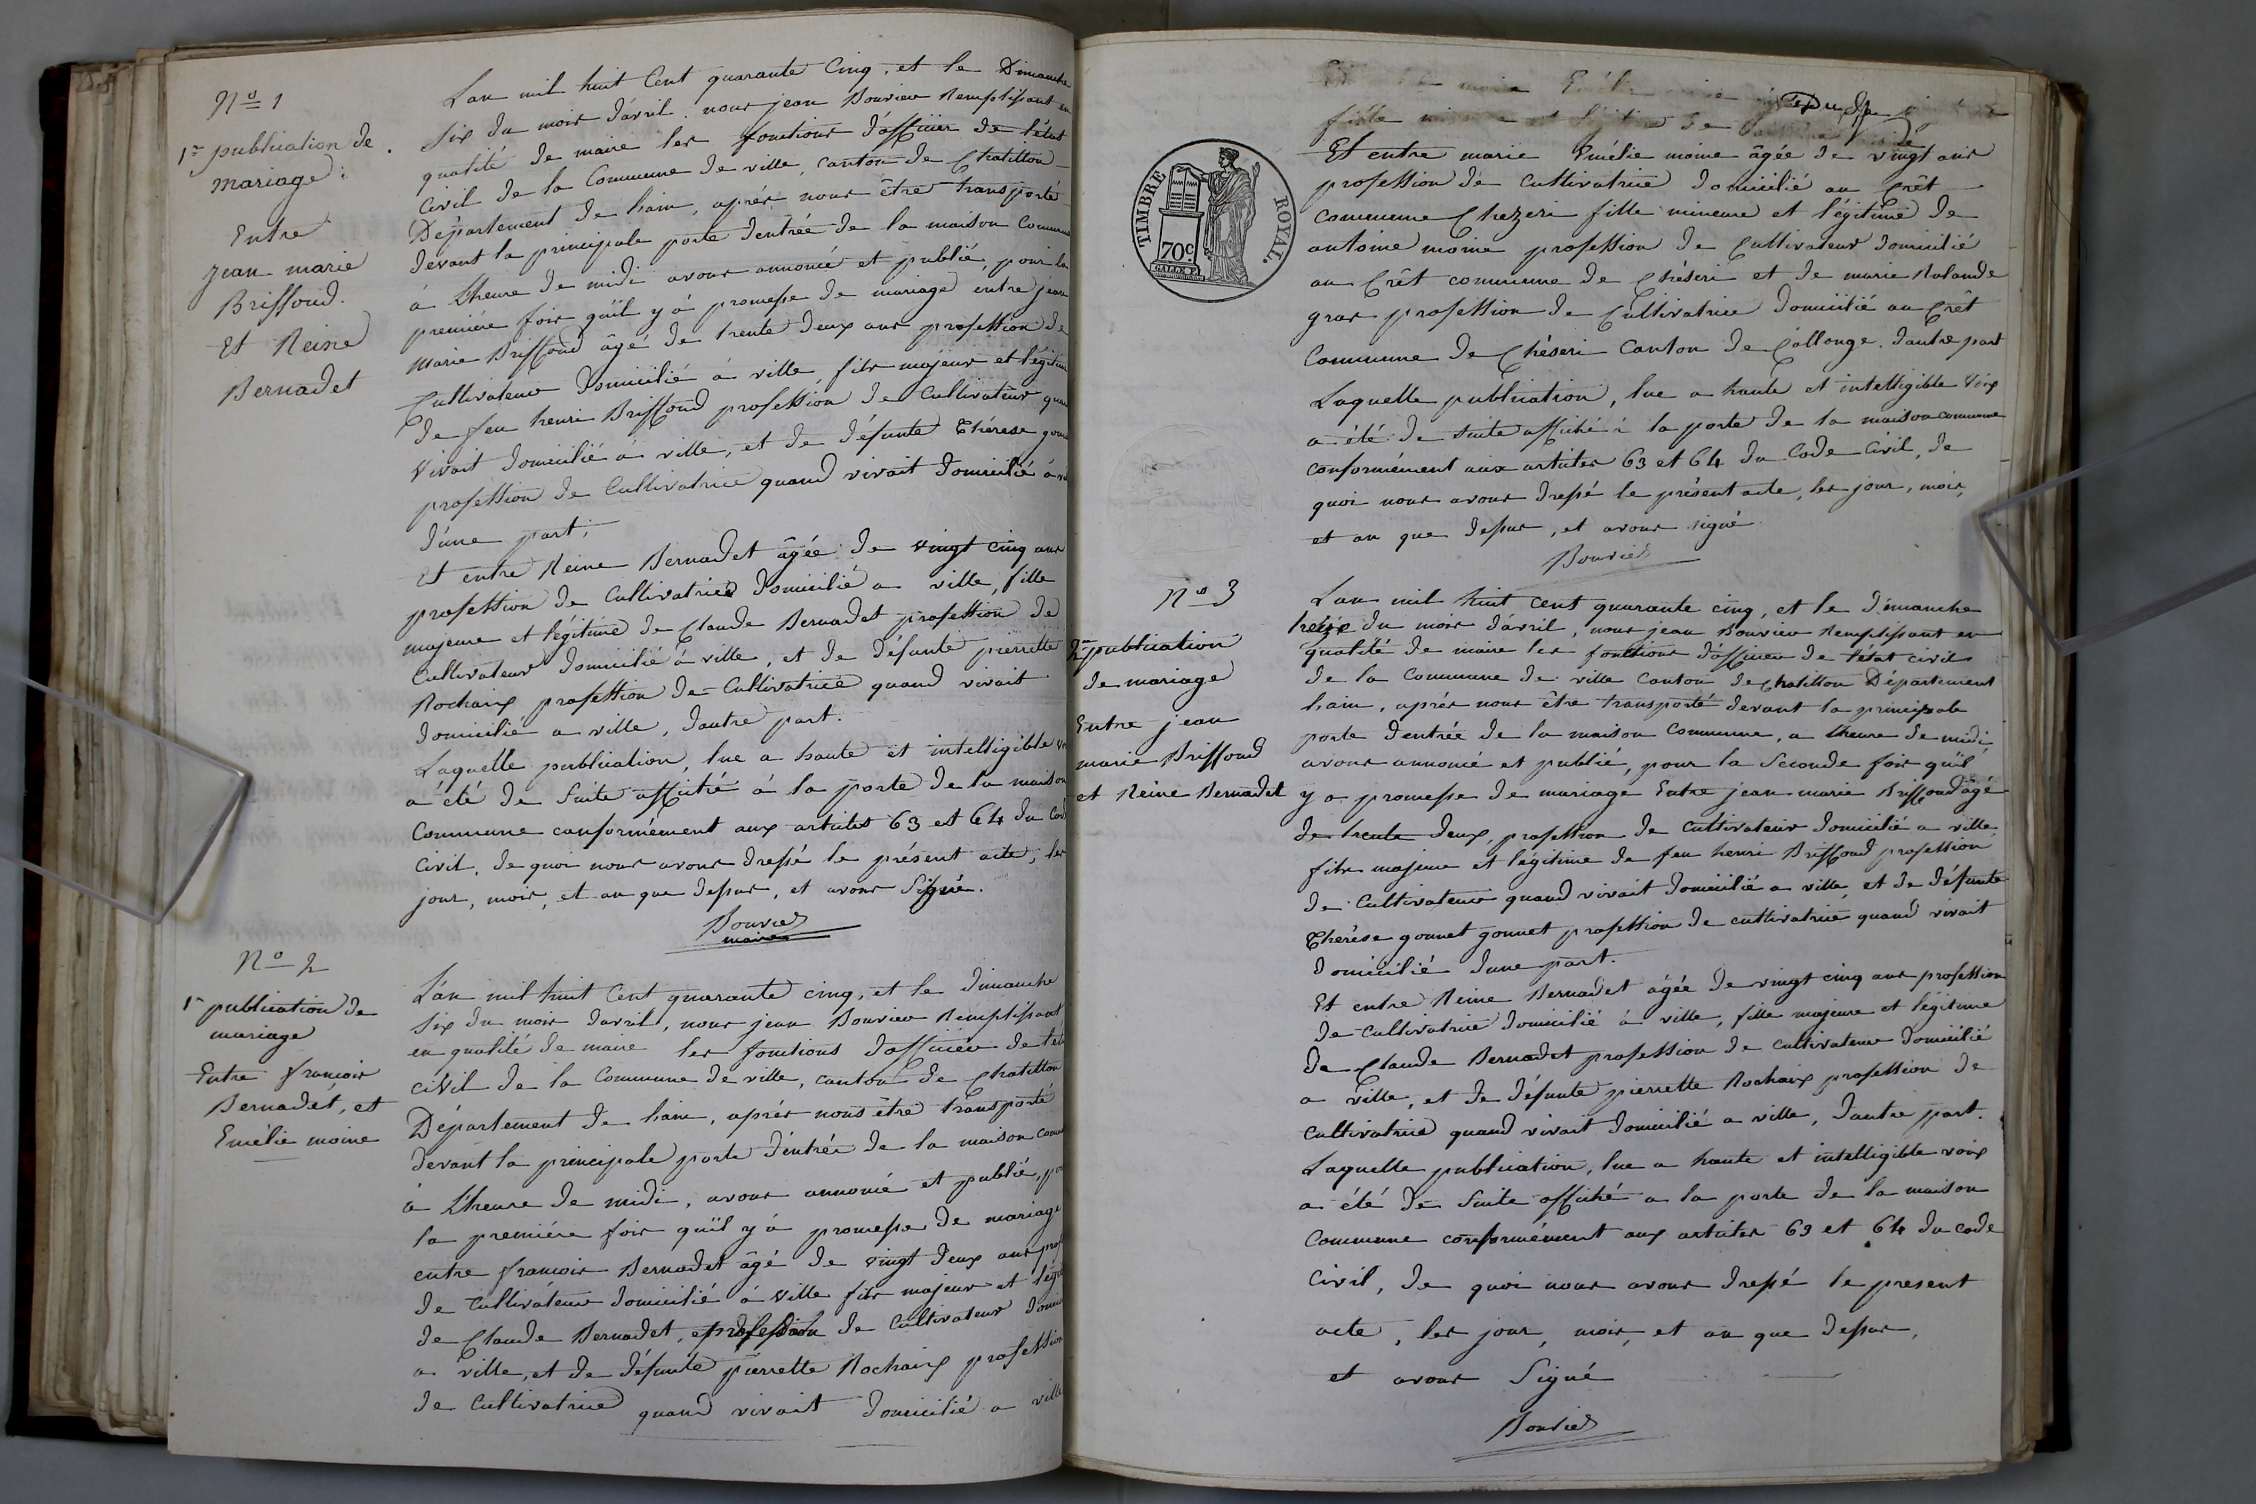 N° 1
1re publication de
mariage:
Entre
jean marie
Briffoud.
Et Reine
Bernadet
Lan mil huit Cent quarante Cinq, et le Dimanche
six du mois d'avril. nous jean Bouvier Remplissant en
qualité de maire les fonctions d'officier de l'état
civil de la Commune de ville, canton de Chatillon
Département de lain, aprés nous être transporté
devant la principale porte dentrée de la maison Commune
à Lheure de midi avons annoncé et publié, pour la
premiére fois qu'il y à promesse de mariage entre jean
marie Briffoud âgé de trente deux ans profession de
Cultivateur Domicilié à ville fils majeur et légitime
de feu henri Briffoud profession de Cultivateur quand
vivait domicilié à ville, et de défunte Thérese
profession de Cultivatrice quand vivait domicilié à
d'une part;
Et entre Reine Bernadet âgée de vingt cinq ans
profession de Cultivatrice domicilié a ville, fille
majeure et légitime de Claude Bernadet profession de
Cultivateur domicilié à ville, et de défunte pierrette
Rochaix profession de Cultivatrice quand vivait
domicilié a ville, dautre part.
Laquelle publication, lue a haute et intelligible
a été de suite affiché à la porte de la maison
Commune conformément aux articles 63 et 64 du Cod
civil, de quoi nous avons dressé le présent acte, les
jour, mois, et an que dessus, et avons Signé.
Bouvier
maire
N° 2
1re publication de
mariage
Entre françois
Bernadet, et
Emélie moine
L'an mil huit Cent quarante cinq, et le dimanche
six du mois davril, nous jean Bouvier Remplissant
en qualité de maire les fonctions dofficier de
civil de la Commune de ville, canton de Chatillon
Département de lain, aprés nous être transporté
devant la principale porte d'entrée de la maison
à Lheure de midi, avons annoncé et publié,
la premiére fois qu'il y à promesse de mariage
entre françois Bernadet âgé de vingt deux ans
de Cultivateur domicilié à ville fils majeur et
de Claude Bernadet, profession de Cultivateur
a ville, et de défunte pierrette Rochaix profession
de Cultivatrice quand vivait domicilié a ville
TIMBRE ROYAL.
70c.
moine Emélie
fille et légitime de
Et entre marie Emélie moine âgée de vingt ans
profession de cultivatrice domicilié au Crêt
commune Chezeri fille mineure et légitime de
antoine moine profession de Cultivateur domicilié
au Crêt commune de Chéseri et de marie Rolande
gros profession de Cultivatrice domicilié au Crêt
Commune de Chéseri Canton de Collonge. dautre part
Laquelle publication, lue a haute et intelligible voix
a été de suite affiché à la porte de la maison commune
conformément aux articles 63 et 64 du Code Civil, de
quoi nous avons dressé le présent acte, les jour, mois,
et an que dessus, et avons signé
Bouvier
N° 3
2me publication
de mariage
Entre jean
marie Briffoud
et Reine Bernadet
Lan mil huit cent quarante cinq, et le dimanche
treize du mois d'avril, nous jean Bouvier Remplissant en
qualité de maire les fonctions d'officier de l'état civil
de la Commune de ville Canton de Chatillon Département
lain, aprés nous être transporté devant la principale
porte dentrée de la maison Commune, a Lheure de midi
avons annoncé et publié, pour la Seconde fois qu'il
y a promesse de mariage Entre jean marie Briffoud âgé
de trente deux, profession de Cultivateur domicilié a ville
fils majeur et légitime de feu henri Briffoud profession
de Cultivateur quand vivait domicilié a ville et de défunte
Thérése gonnet gonnet profession de cultivatrice quand vivait
domicilié dune part.
Et entre Reine Bernadet âgée de vingt cinq ans profession
de Cultivatrice domicilié à ville, fille majeure et légitime
de Claude Bernadet profession de cultivateur domicilié
a ville, et de défunte pierrette Rochaix profession de
cultivatrice quand vivait domicilié a ville, dautre part.
Laquelle publication, lue a haute et intelligible voix
a été de Suite affiché a la porte de la maison
Commune conformément aux articles 63 et 64 du code
Civil, de quoi nous avons dressé le present
acte, les jour, mois, et an que dessus,
et avons Signé
Bouvier